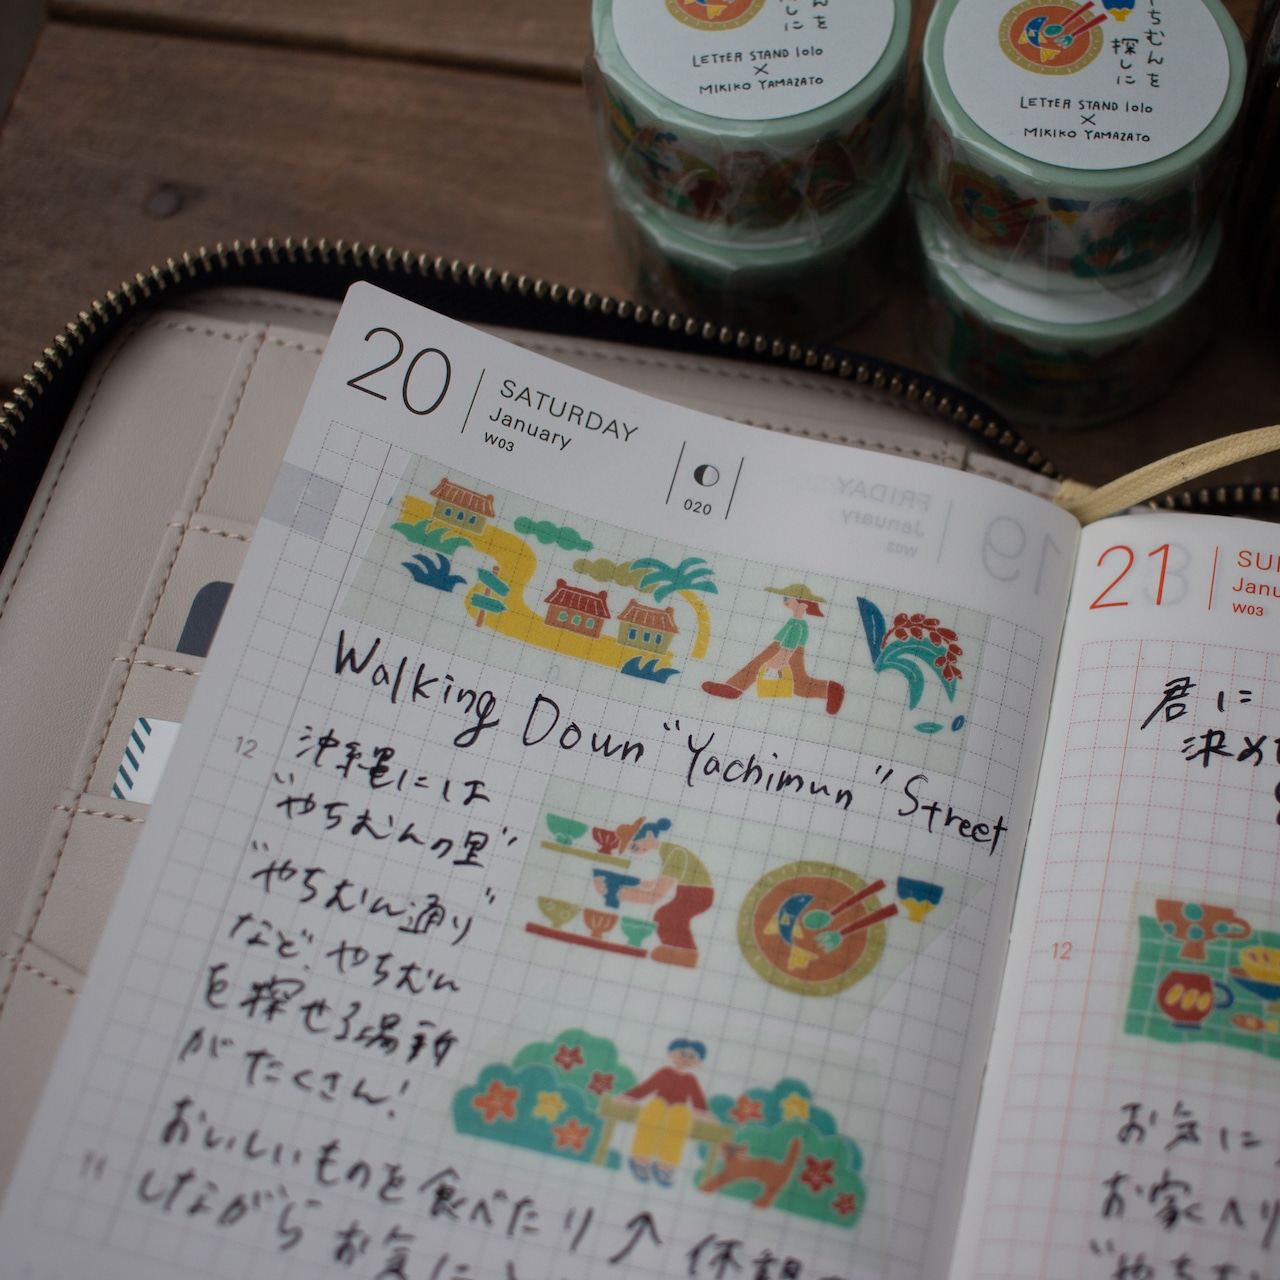 んを
に
LETTER STAND lolo
×
MIKIKO YAMAZATO
ちむんを
探しに
LETTER STAND lolo
×
MIKIKO YAMAZATO
20
SATURDAY
January
W03
020
FRIDAY
January
W03
19
Walking Down "Yachimun" Street
12
沖縄には
"やちむんの里"
"やちむん通り"
など、やちむん
を探せる場所
がたくさん!
おいしいものを食べたり↑休憩
しながら お気に
21
SU
Janu
W03
君に
決め
12
お気に
お家へ
"やち